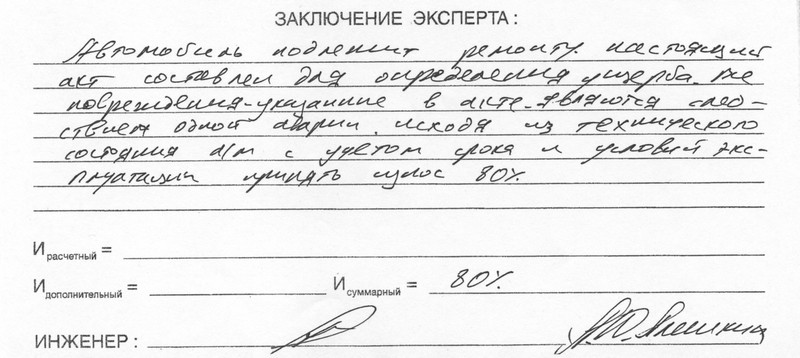 ЗАКЛЮЧЕНИЕ ЭКСПЕРТА:
Автомобиль подлежит ремонту. настоящий
акт составлен для определения ущерба. все
повреждения-указанные в акте-являются след-
ствием одной аварии. исходя из технического
состояния а/м с учетом срока и условий экс-
плуатации принять износ 80%.
И расчетный =
И дополнительный = И суммарный = 80%.
ИНЖЕНЕР: